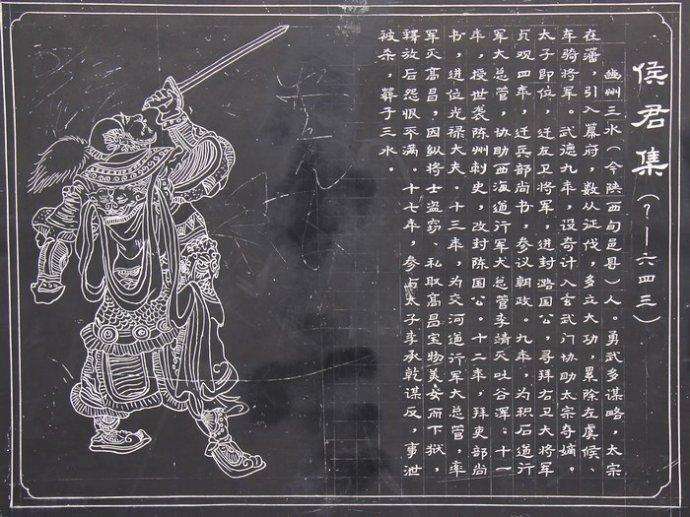 侯君集(？—六四三)
豳州三水(今陕西旬邑县)人。勇武多谋略，太宗
在藩，引入幕府，数从征伐，多立大功，累除左虞候、
车骑将军。武德九年，设奇计入玄武门协助太宗夺嫡。
太子即位，迁左卫将军，进封潞国公，寻拜右卫大将军
贞观四年，迁兵部尚书，参议朝政。九年，为积石道行
军大总管，协助西海道行军大总管李靖灭吐谷浑。十一
年，授世袭陈州刺史，改封陈国公。十二年，拜吏部尚
书，进位光禄大夫。十三年，为交河道行军大总管，率
军灭高昌，因纵将士盗窃、私取高昌宝物美女而下狱，
释放后怨恨不满。十七年，参与太子李承乾谋反，事泄
被杀，葬于三水。